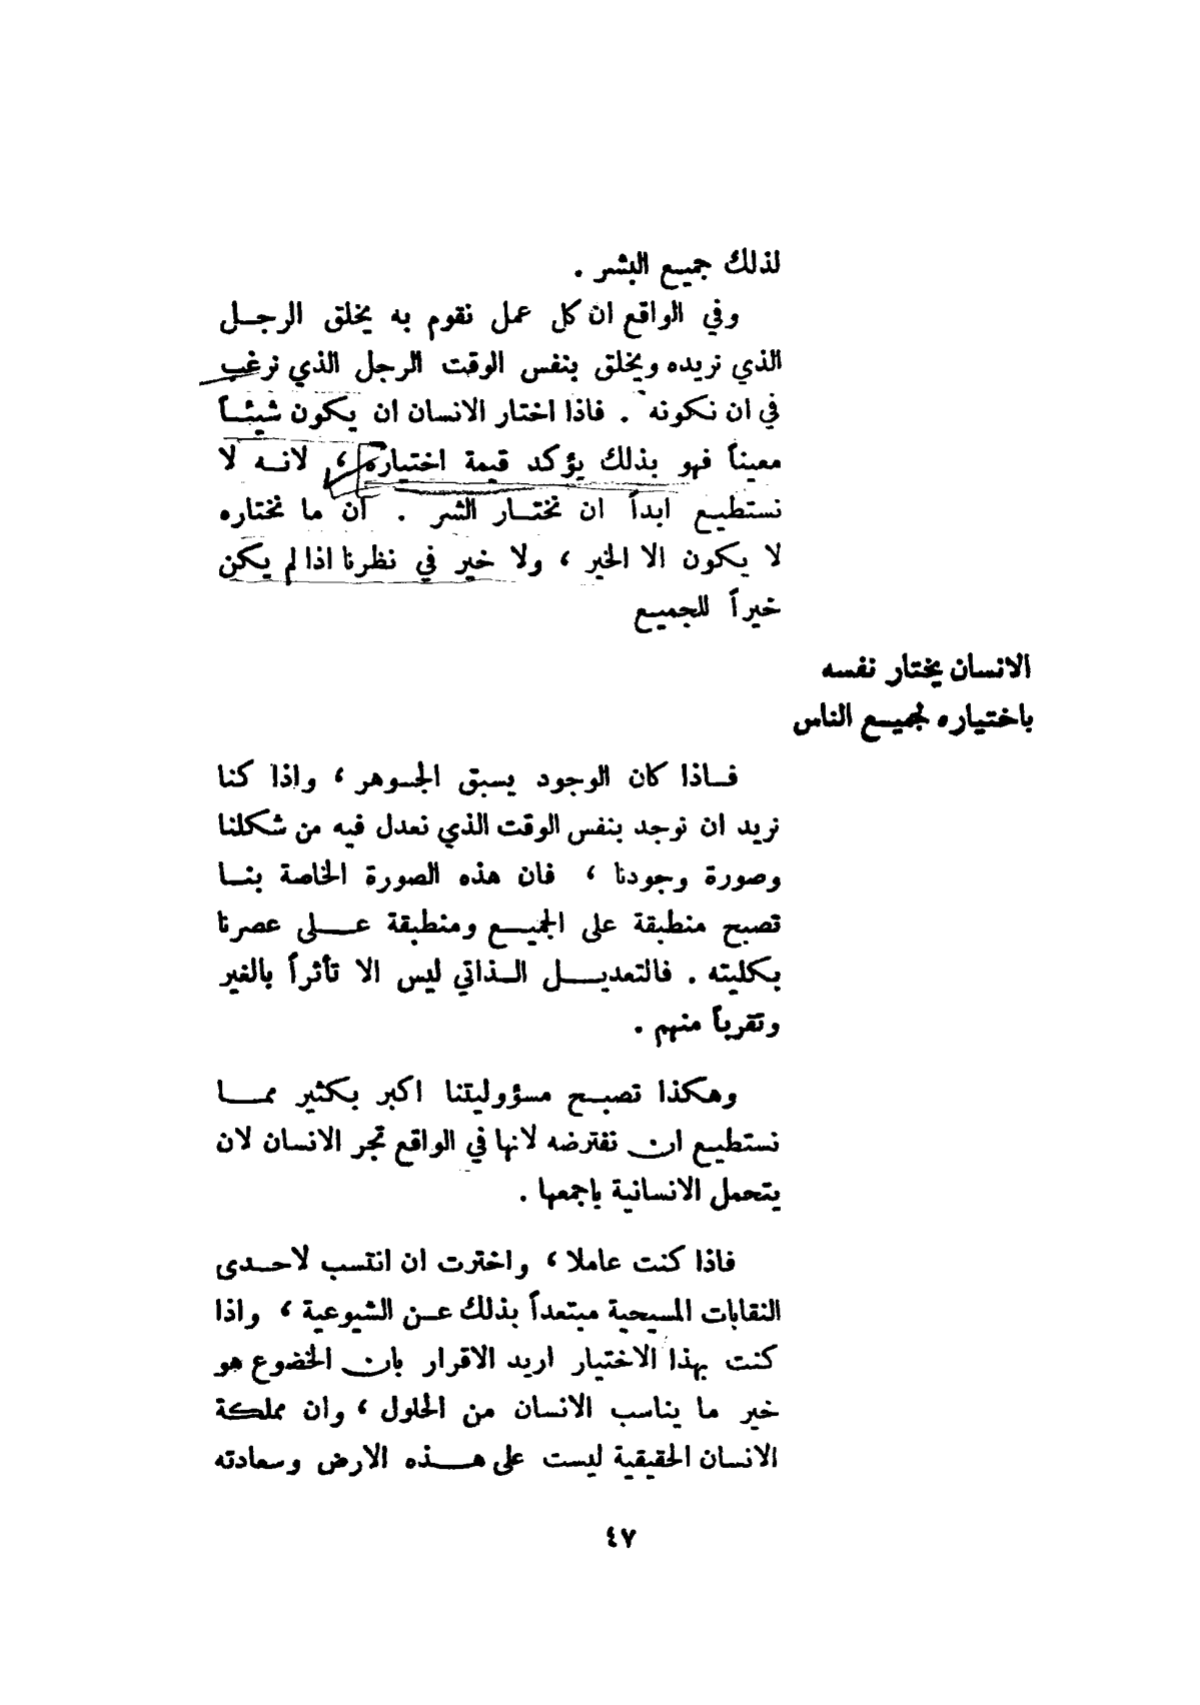 لذلك جميع البشر .
وفي الواقع ان كل عمل نقوم به يخلق الرجل
الذي نريده ويخلق بنفس الوقت الرجل الذي نرغب
في ان نكونه . فاذا اختار الانسان ان يكون شيئاً
معيناً فهو بذلك يؤكد قيمة اختياره ، لانه لا
نستطيع ابداً ان نختار الشر . ان ما نختاره
لا يكون الا الخير ، ولا خير في نظرنا اذا لم يكن
خيراً للجميع
الانسان يختار نفسه
باختياره لجميع الناس
فاذا كان الوجود يسبق الجوهر ، واذا كنا
نريد ان نوجد بنفس الوقت الذي نعدل فيه من شكلنا
وصورة وجودنا ، فان هذه الصورة الخاصة بنا
تصبح منطبقة على الجميع ومنطبقة على عصرنا
بكليته . فالتعديل الذاتي ليس الا تأثراً بالغير
وتقرباً منهم .
وهكذا تصبح مسؤوليتنا اكبر بكثير مما
نستطيع ان نفترضه لانها في الواقع تجر الانسان لان
يتحمل الانسانية باجمعها .
فاذا كنت عاملا ، واخترت ان انتسب لاحدى
النقابات المسيحية مبتعداً بذلك عن الشيوعية ، واذا
كنت بهذا الاختيار اريد الاقرار بان الخضوع هو
خير ما يناسب الانسان من الحلول ، وان مملكة
الانسان الحقيقية ليست على هذه الارض وسعادته
٤٧